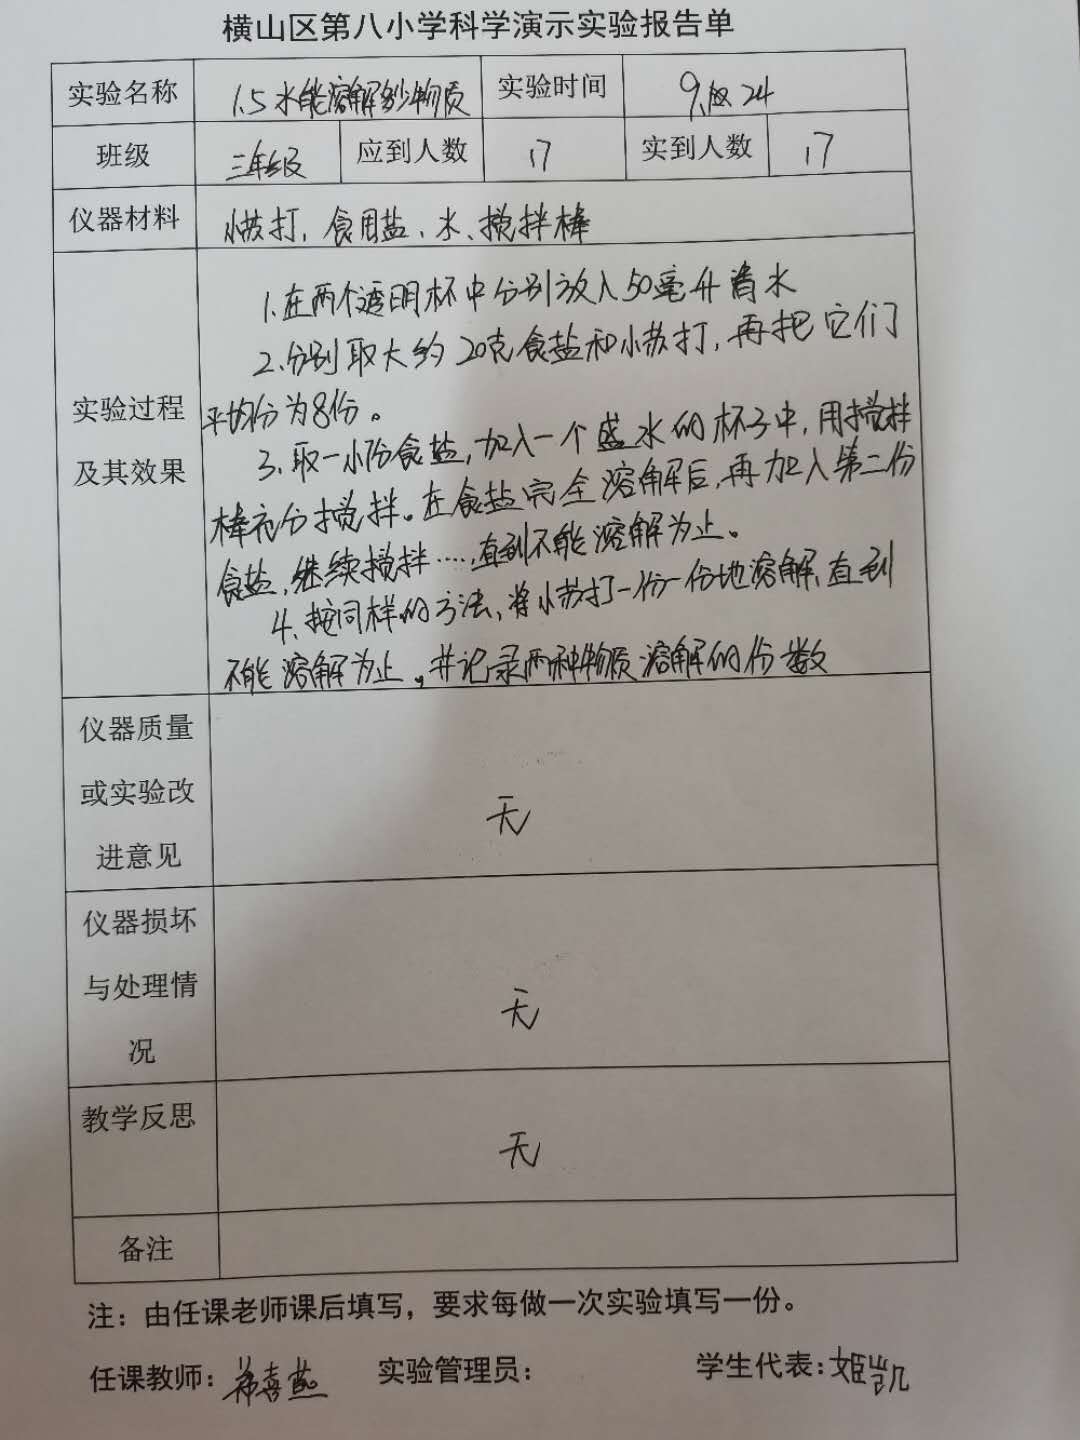 横山区第八小学科学演示实验报告单
实验名称 1.5 水能溶解多少物质 实验时间 9. 24
班级 三年级 应到人数 17 实到人数 17
仪器材料 小苏打、食用盐、水、搅拌棒
实验过程及其效果
1.在两个透明杯中分别放入50毫升清水
2.分别取大约20克食盐和小苏打,再把它们
平均份为8份。
3.取一小份食盐,加入一个盛水的杯子中,用搅拌
棒充分搅拌。在食盐完全溶解后,再加入第二份
食盐,继续搅拌……,直到不能溶解为止。
4.按同样的方法,将小苏打一份一份地溶解,直到
不能溶解为止。并记录两种物质溶解的份数
仪器质量
或实验改
进意见
无
仪器损坏
与处理情
况
无
教学反思
无
备注
注：由任课老师课后填写，要求每做一次实验填写一份。
任课教师: 喜燕 实验管理员: 学生代表: 姬凯